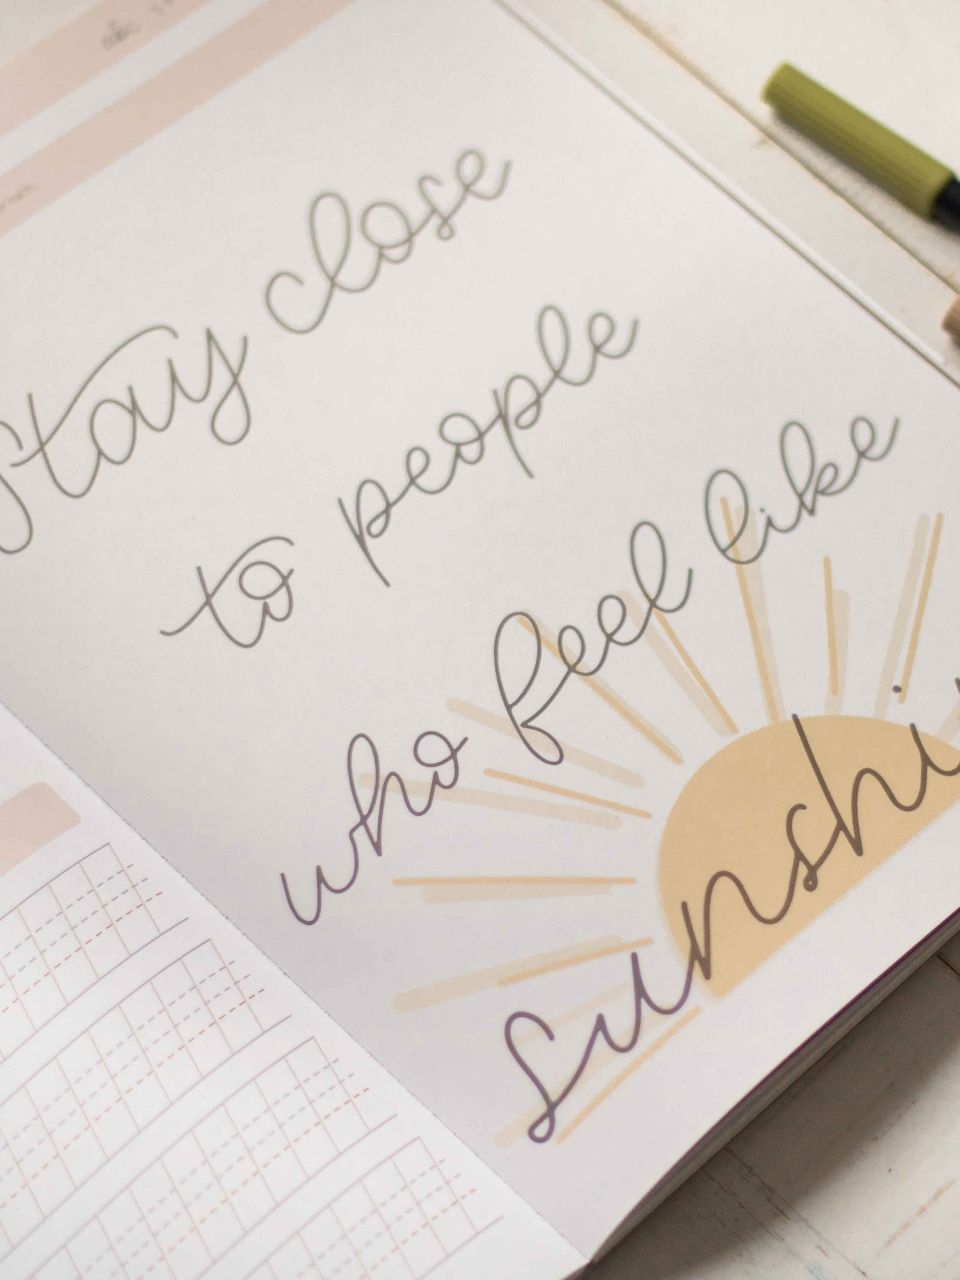 Stay close
to people
who feel like
sunshi